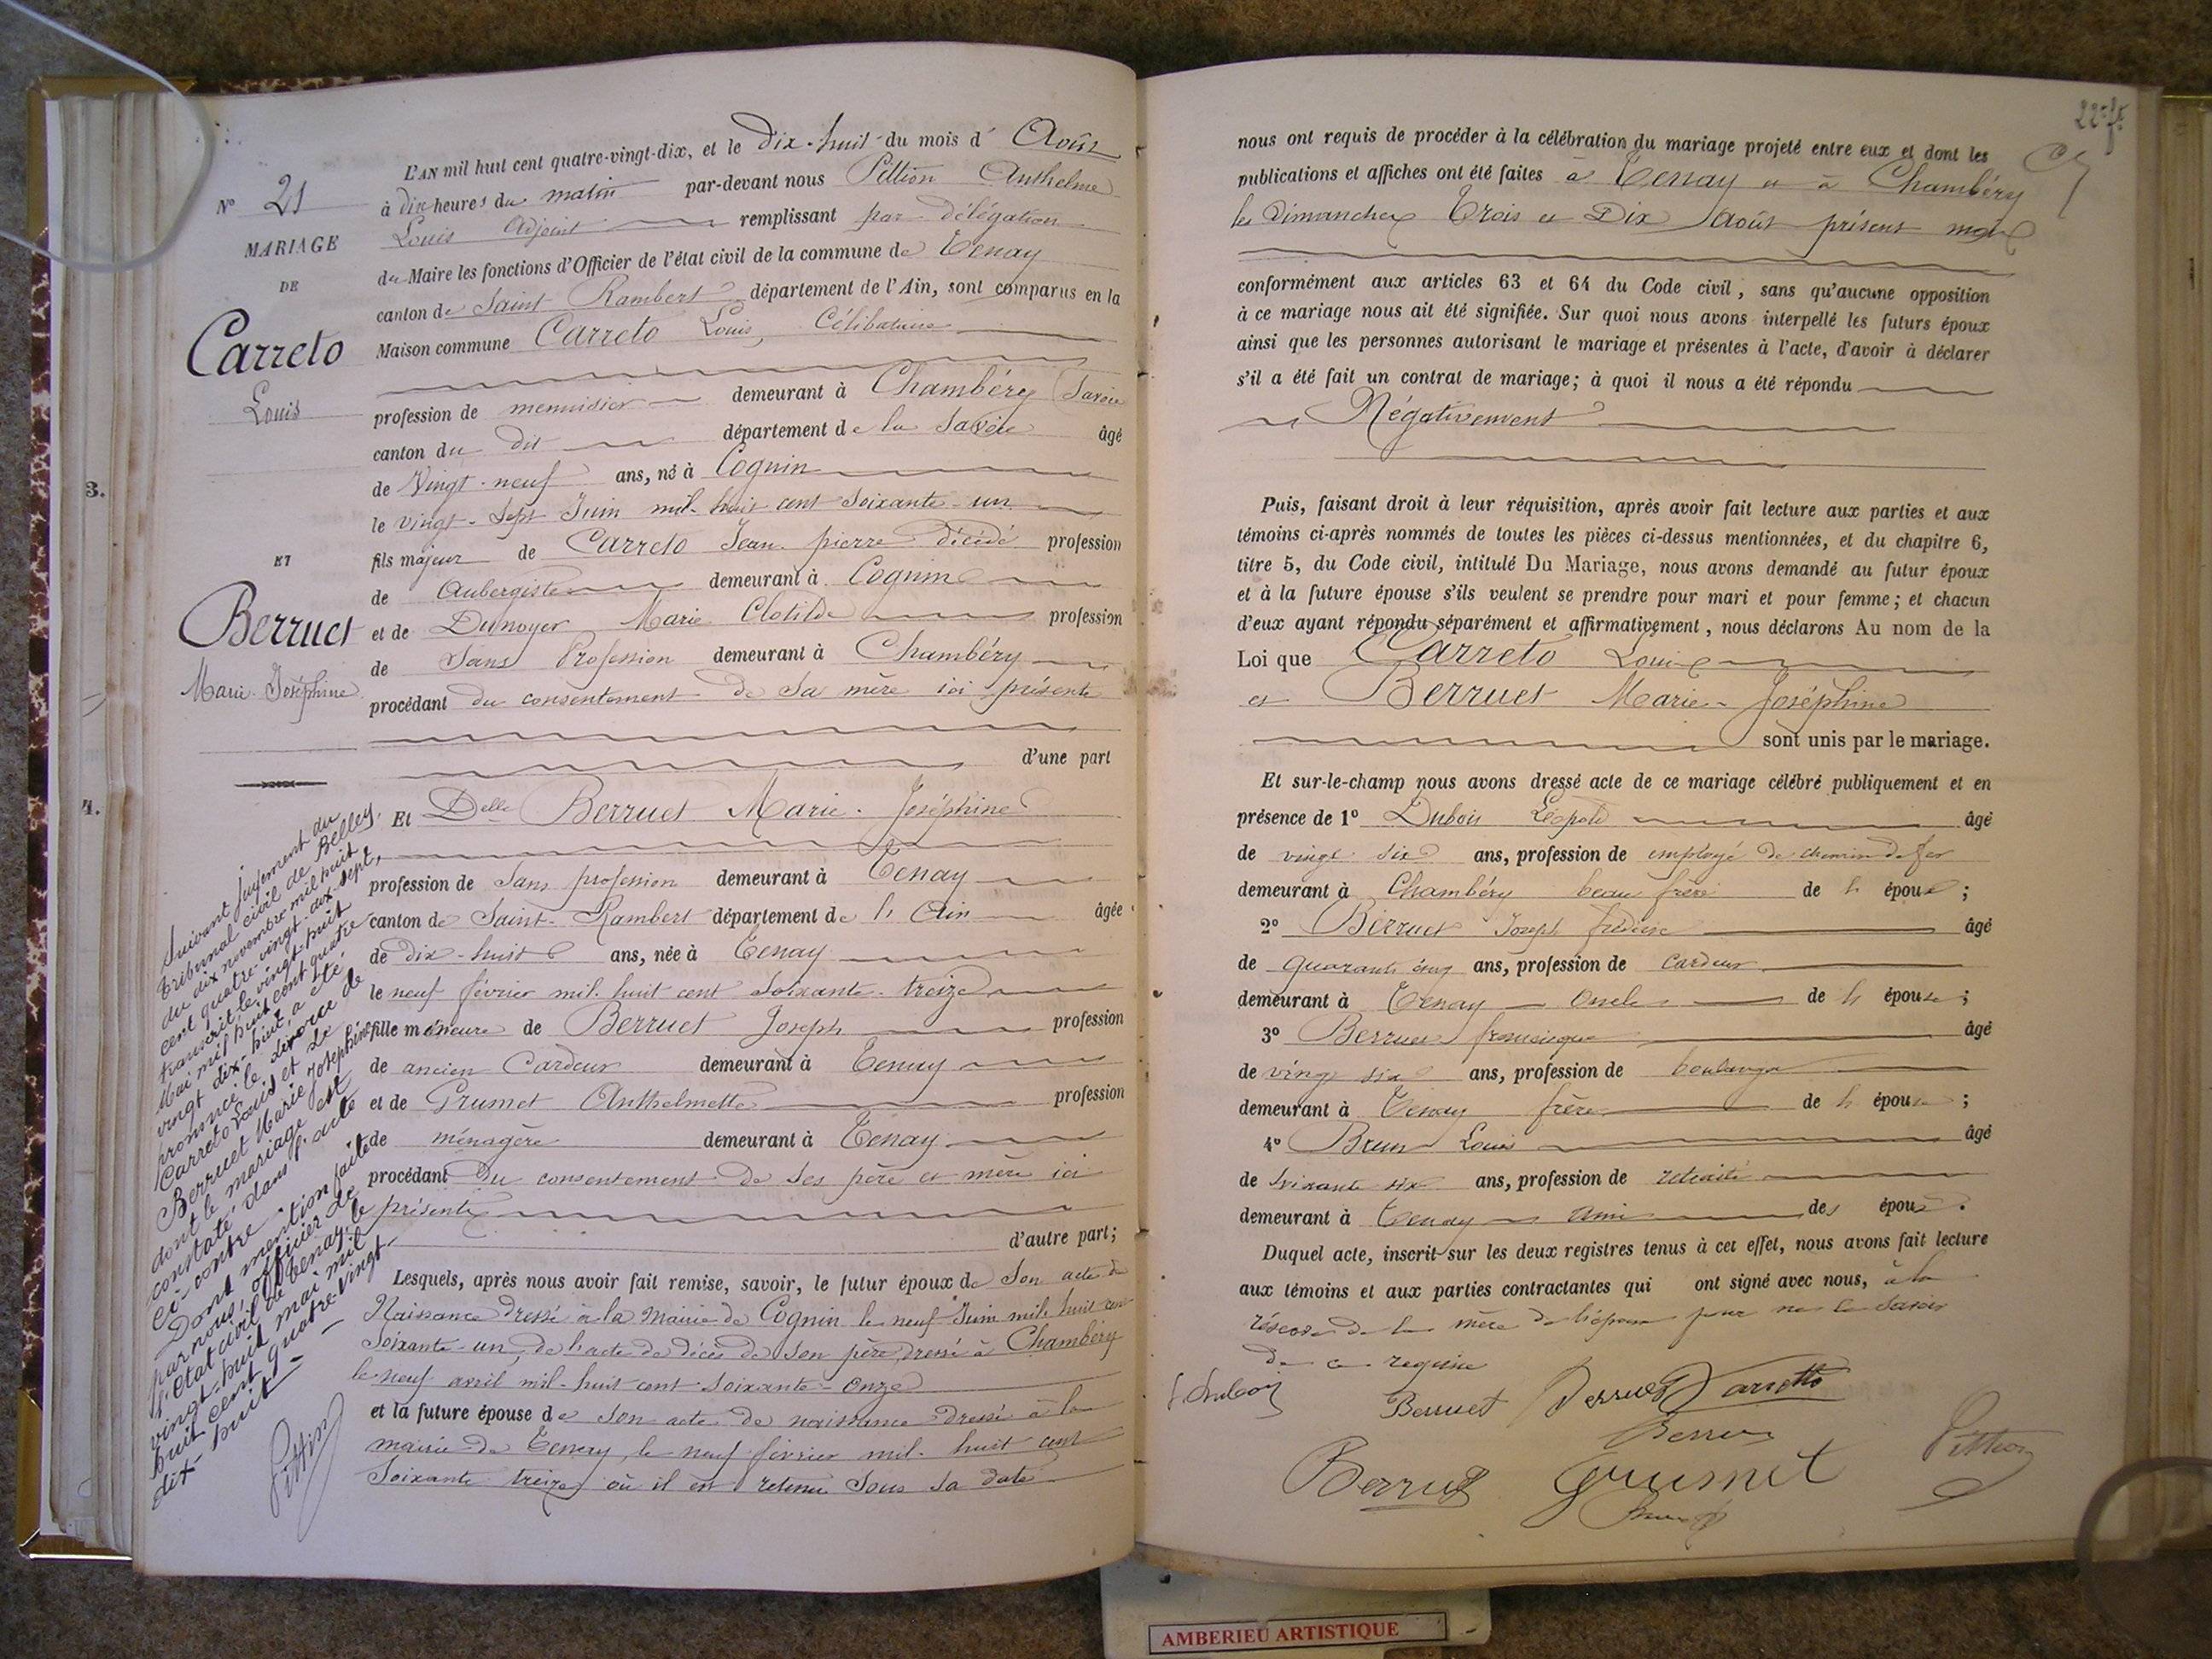 L'AN mil huit cent quatre-vingt-dix, et le Dix-huit du mois d' Août
à dix heures du matin par-devant nous Pittion Anthelme
Louis Adjoint remplissant par délégation
du Maire les fonctions d'Officier de l'état civil de la commune de Tenay
canton de Saint Rambert département de l'Ain, sont comparus en la
Maison commune Carreto Louis, Célibataire
profession de menuisier demeurant à Chambéry (Savoie
canton du dit département de la Savoie âgé
de Vingt-neuf ans, né à Cognin
le vingt-sept Juin mil-huit cent soixante-un
fils majeur de Carreto Jean-pierre décédé profession
de Aubergiste demeurant à Cognin
et de Dunoyer Marie Clotilde profession
de Sans Profession demeurant à Chambéry
procédant du consentement de Sa mère ici présente
d'une part
Et Delle Berruet Marie-Joséphine
profession de Sans profession demeurant à Tenay
canton de Saint-Rambert département de l'Ain âgée
de dix-huit ans, née à Tenay
le neuf février mil-huit cent soixante-treize
fille mineure de Berruet Joseph profession
de ancien Cardeur demeurant à Tenay
et de Grumet Anthelmette profession
de ménagère demeurant à Tenay
procédant Du consentement de ses père et mère ici
présents
d'autre part;
Lesquels, après nous avoir fait remise, savoir, le futur époux de Son acte de
Naissance dressé à la Mairie de Cognin le neuf Juin mil huit cent
soixante-un, de l'acte de décès de son père, dressé à Chambéry
le neuf avril mil-huit cent soixante-onze
et la future épouse de son acte de naissance dressé à la
mairie de Tenay, le neuf février mil-huit cent
soixante treize où il est retenu sous sa date
N° 21
MARIAGE
DE
Carreto
Louis
ET
Berruet
Marie-Joséphine
Suivant jugement du
tribunal civil de Belley,
du dix novembre mil huit
cent quatre-vingt-dix-sept,
transcrit le vingt-huit
Mai mil huit cent quatre
vingt dix-huit, a été
prononcé le divorce de
Carreto Louis et de
Berruet Marie Joséphine
dont le mariage est
constaté dans l'acte
ci-contre.
Dont mention faite
par nous, officier de
l'état civil de Tenay, le
vingt-huit mai mil
huit cent quatre-vingt
dix-huit
Pittion
3.
4.
22 ft
nous ont requis de procéder à la célébration du mariage projeté entre eux et dont les
publications et affiches ont été faites à Tenay et à Chambéry
les Dimanches Trois et Dix Août présent mois
conformément aux articles 63 et 64 du Code civil, sans qu'aucune opposition
à ce mariage nous ait été signifiée. Sur quoi nous avons interpellé les futurs époux
ainsi que les personnes autorisant le mariage et présentes à l'acte, d'avoir à déclarer
s'il a été fait un contrat de mariage; à quoi il nous a été répondu
Négativement
Puis, faisant droit à leur réquisition, après avoir fait lecture aux parties et aux
témoins ci-après nommés de toutes les pièces ci-dessus mentionnées, et du chapitre 6,
titre 5, du Code civil, intitulé Du Mariage, nous avons demandé au futur époux
et à la future épouse s'ils veulent se prendre pour mari et pour femme; et chacun
d'eux ayant répondu séparément et affirmativement, nous déclarons Au nom de la
Loi que Carreto Louis
et Berruet Marie-Joséphine
sont unis par le mariage.
Et sur-le-champ nous avons dressé acte de ce mariage célébré publiquement et en
présence de 1° Dubois Léopold âgé
de vingt six ans, profession de employé de chemin de fer
demeurant à Chambéry beau frère de l' époux ;
2° Berruet Joseph frédéric âgé
de quarante cinq ans, profession de cardeur
demeurant à Tenay Oncle de l' épouse ;
3° Berruet françisque âgé
de vingt six ans, profession de boulanger
demeurant à Tenay frère de l' épouse ;
4° Brun Louis âgé
de soixante six ans, profession de retraité
demeurant à Tenay Ami des époux .
Duquel acte, inscrit sur les deux registres tenus à cet effet, nous avons fait lecture
aux témoins et aux parties contractantes qui ont signé avec nous, à la
réserve de la mère de l'époux pour ne le savoir
de ce requise
L. Dubois Berruet Berruet Carretto
Berruet
Berruet Grumet Pittion
Brun
AMBERIEU ARTISTIQUE